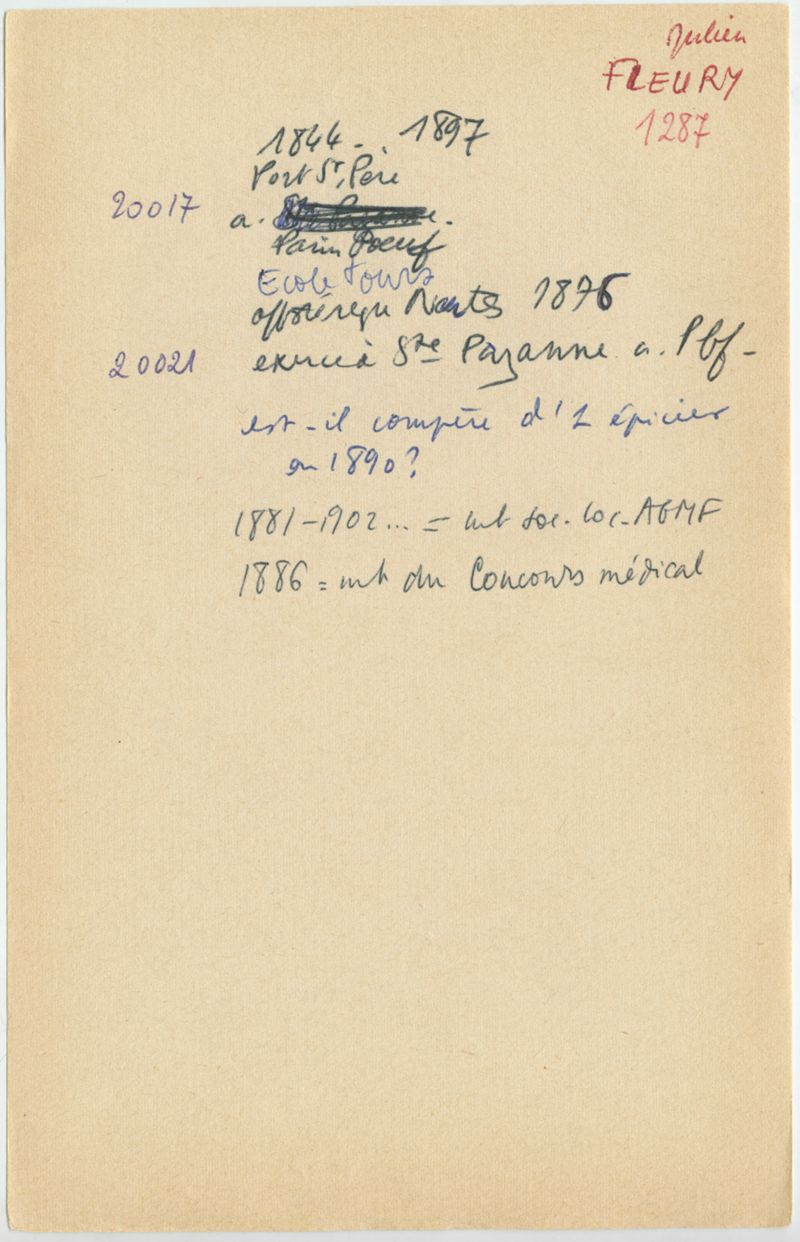 Julien
FLEURY
1287
1844 - . 1897
Port St. Père
20017 a.
Paim Pœuf
Ecole Tours
Nantes 1876
20021 exerce à Ste Pazanne a. Pbf -
est-il compère d'1 épicier
en 1890?
1881-1902... = mb soc. loc. AGMF
1886 = mb du Concours médical